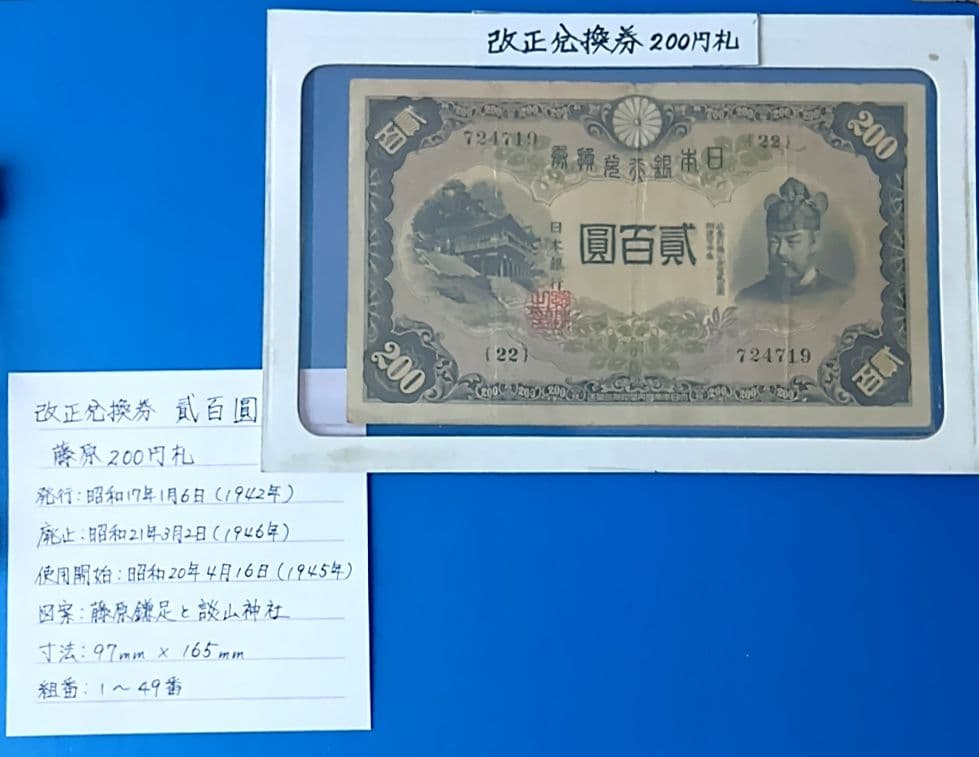 改正兌換券 200円札
貳百
200
724719
{22}
日本銀行兌換券
貳百圓
日本銀行
{22}
724719
200
貳百
200 200 200
200 200
改正兌換券 貳百圓
藤原200円札
発行:昭和17年1月6日(1942年)
廃止:昭和21年3月2日(1946年)
使用開始:昭和20年4月16日(1945年)
図案:藤原鎌足と談山神社
寸法:97mm × 165mm
組番:1〜49番